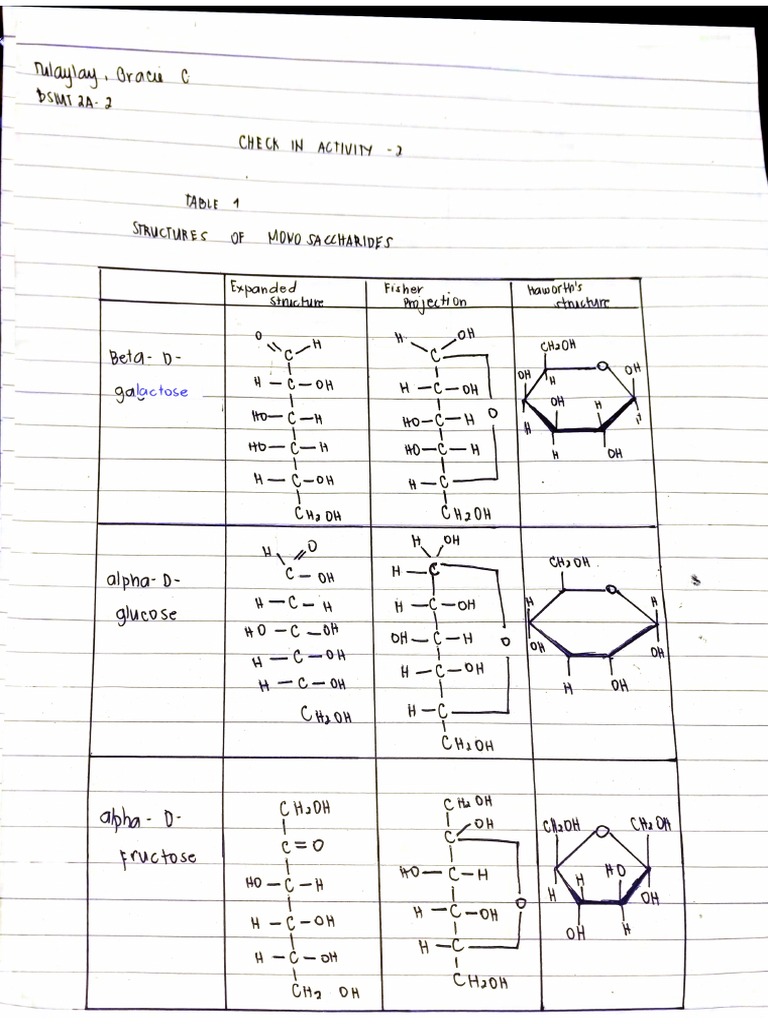 Tulaylay, Gracie C
BSMT 2A-2
CHECK IN ACTIVITY -2
TABLE 1
STRUCTURES OF MONOSACCHARIDES
Expanded Structure
Fisher Projection
Haworth's structure
Beta-D-
galactose
O H
C
H-C-OH
HO-C-H
HO-C-H
H-C-OH
CH2OH
H OH
C
H-C-OH
HO-C-H O
HO-C-H
H-C
CH2OH
CH2OH
O
OH H OH
OH H
H H
H OH
alpha-D-
glucose
H O
C-OH
H-C-H
HO-C-OH
H-C-OH
H-C-OH
CH2OH
H OH
H-C
H-C-OH
OH-C-H O
H-C-OH
H-C
CH2OH
CH2OH
O
H H
OH OH
H OH
alpha-D-
Fructose
CH2OH
C=O
HO-C-H
H-C-OH
H-C-OH
CH2 OH
CH2OH
OH
C
HO-C-H
H-C-OH O
H-C
CH2OH
CH2OH O CH2OH
H H HO OH
OH H